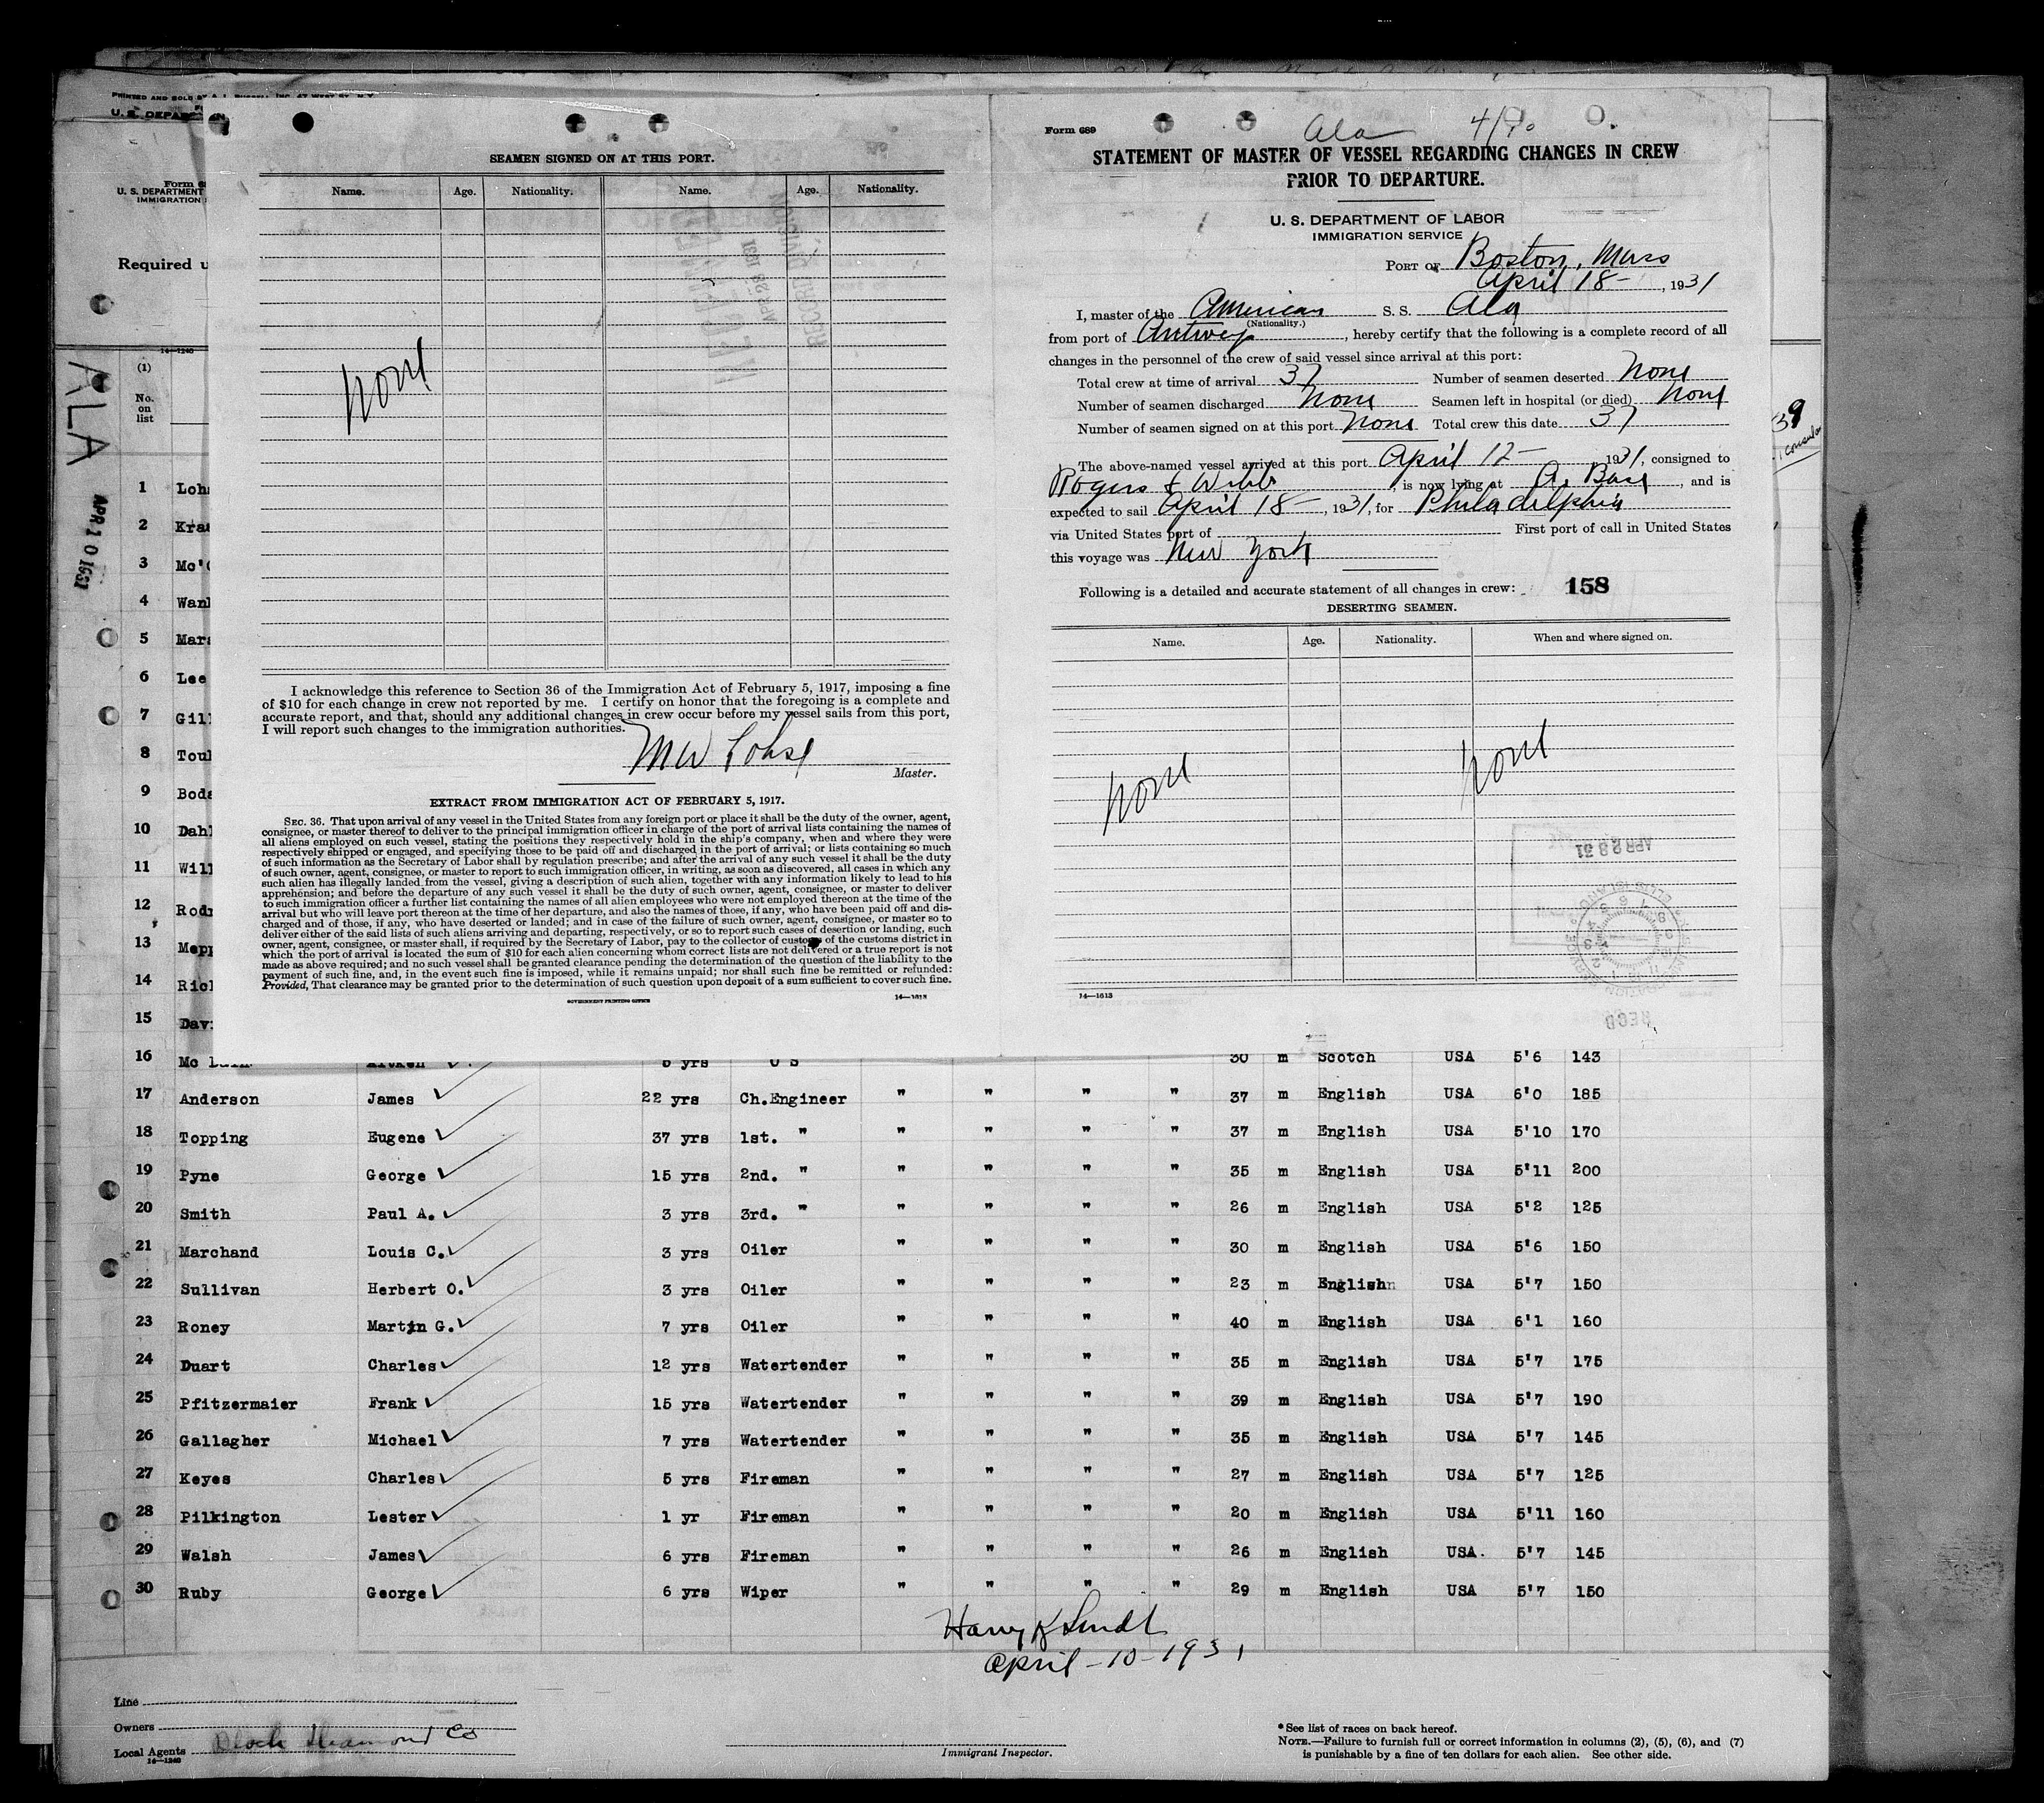 PRINTED AND SOLD BY A. J. RUSSELL INC. 47 WEST ST. N.Y.
U. S. DEPAR
Form
U. S. DEPARTMENT
IMMIGRATION
Required u
14—1240
ALA
APR 10 1931
(1)
No.
on
list
SEAMEN SIGNED ON AT THIS PORT.
Name. Age. Nationality. Name. Age. Nationality.
APR 28 1931
none
I acknowledge this reference to Section 36 of the Immigration Act of February 5, 1917, imposing a fine
of $10 for each change in crew not reported by me. I certify on honor that the foregoing is a complete and
accurate report, and that, should any additional changes in crew occur before my vessel sails from this port,
I will report such changes to the immigration authorities.
MW Lohse
Master.
EXTRACT FROM IMMIGRATION ACT OF FEBRUARY 5, 1917.
SEC. 36. That upon arrival of any vessel in the United States from any foreign port or place it shall be the duty of the owner, agent,
consignee, or master thereof to deliver to the principal immigration officer in charge of the port of arrival lists containing the names of
all aliens employed on such vessel, stating the positions they respectively hold in the ship's company, when and where they were
respectively shipped or engaged, and specifying those to be paid off and discharged in the port of arrival; or lists containing so much
of such information as the Secretary of Labor shall by regulation prescribe; and after the arrival of any such vessel it shall be the duty
of such owner, agent, consignee, or master to report to such immigration officer, in writing, as soon as discovered, all cases in which any
such alien has illegally landed from the vessel, giving a description of such alien, together with any information likely to lead to his
apprehension; and before the departure of any such vessel it shall be the duty of such owner, agent, consignee, or master to deliver
to such immigration officer a further list containing the names of all alien employees who were not employed thereon at the time of the
arrival but who will leave port thereon at the time of her departure, and also the names of those, if any, who have been paid off and dis-
charged and of those, if any, who have deserted or landed; and in case of the failure of such owner, agent, consignee, or master so to
deliver either of the said lists of such aliens arriving and departing, respectively, or so to report such cases of desertion or landing, such
owner, agent, consignee, or master shall, if required by the Secretary of Labor, pay to the collector of customs of the customs district in
which the port of arrival is located the sum of $10 for each alien concerning whom correct lists are not delivered or a true report is not
made as above required; and no such vessel shall be granted clearance pending the determination of the question of the liability to the
payment of such fine, and, in the event such fine is imposed, while it remains unpaid; nor shall such fine be remitted or refunded:
Provided, That clearance may be granted prior to the determination of such question upon deposit of a sum sufficient to cover such fine.
GOVERNMENT PRINTING OFFICE 14—1613
Form 689
Ala 4/10
STATEMENT OF MASTER OF VESSEL REGARDING CHANGES IN CREW
PRIOR TO DEPARTURE.
U. S. DEPARTMENT OF LABOR
IMMIGRATION SERVICE
PORT OF Boston, Mass
April 18—, 1931
I, master of the American S. S. Ala
(Nationality.)
from port of Antwep, hereby certify that the following is a complete record of all
changes in the personnel of the crew of said vessel since arrival at this port:
Total crew at time of arrival 37 Number of seamen deserted None
Number of seamen discharged None Seamen left in hospital (or died) None
Number of seamen signed on at this port None Total crew this date 37
The above-named vessel arrived at this port April 12— 1931, consigned to
Rogers & Webb, is now lying at A. Base, and is
expected to sail April 18—, 1931, for Philadelphia
via United States port of First port of call in United States
this voyage was New York
Following is a detailed and accurate statement of all changes in crew: 158
DESERTING SEAMEN.
Name. Age. Nationality. When and where signed on.
none none
APR 28 31
REC'D
14—1613
39
consular
1 Loh
2 Kra
3 Mc'
4 Wan
5 Mar
6 Lee
7 Gil
8 Tou
9 Boda
10 Dah
11 Wil
12 Rod
13 Mepp
14 Ric
15 Dav
16 Mc Aitken 5 yrs U S 30 m Scotch USA 5'6 143
17 Anderson James 22 yrs Ch.Engineer " " " " 37 m English USA 6'0 185
18 Topping Eugene 37 yrs 1st. " " " " " 37 m English USA 5'10 170
19 Pyne George 15 yrs 2nd. " " " " " 35 m English USA 5'11 200
20 Smith Paul A. 3 yrs 3rd. " " " " " 26 m English USA 5'2 125
21 Marchand Louis C. 3 yrs Oiler " " " " 30 m English USA 5'6 150
22 Sullivan Herbert O. 3 yrs Oiler " " " " 23 m English USA 5'7 150
23 Roney Martin G. 7 yrs Oiler " " " " 40 m English USA 6'1 160
24 Duart Charles 12 yrs Watertender " " " " 35 m English USA 5'7 175
25 Pfitzermaier Frank 15 yrs Watertender " " " " 39 m English USA 5'7 190
26 Gallagher Michael 7 yrs Watertender " " " " 35 m English USA 5'7 145
27 Keyes Charles 5 yrs Fireman " " " " 27 m English USA 5'7 125
28 Pilkington Lester 1 yr Fireman " " " " 20 m English USA 5'11 160
29 Walsh James 6 yrs Fireman " " " " 26 m English USA. 5'7 145
30 Ruby George 6 yrs Wiper " " " " 29 m English USA 5'7 150
Harry K
April-10-1931
Line
Owners
Local Agents Co
14—1240
Immigrant Inspector.
*See list of races on back hereof.
NOTE.—Failure to furnish full or correct information in columns (2), (5), (6), and (7)
is punishable by a fine of ten dollars for each alien. See other side.